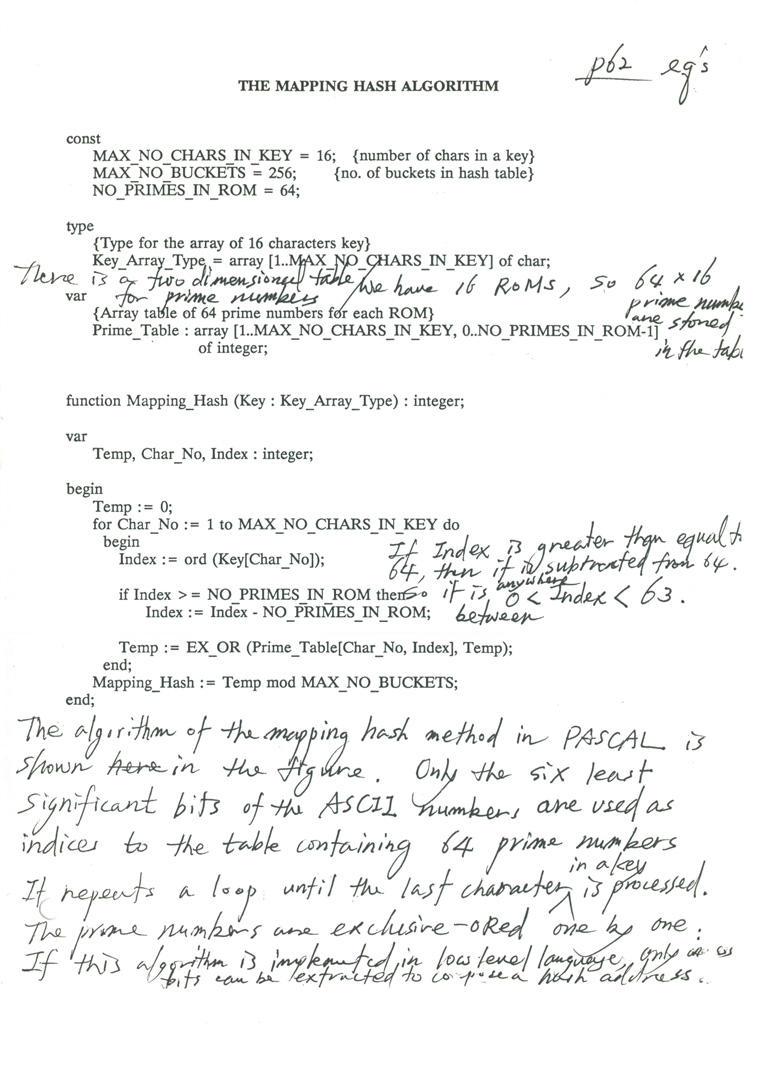 p62 eg's
THE MAPPING HASH ALGORITHM
const
MAX_NO_CHARS_IN_KEY = 16; {number of chars in a key}
MAX_NO_BUCKETS = 256; {no. of buckets in hash table}
NO_PRIMES_IN_ROM = 64;
type
{Type for the array of 16 characters key}
Key_Array_Type = array [1..MAX_NO_CHARS_IN_KEY] of char;
There is a two dimensional table We have 16 ROMs, so 64 x 16
var for prime numbers prime numbe
{Array table of 64 prime numbers for each ROM} are stored
Prime_Table : array [1..MAX_NO_CHARS_IN_KEY, 0..NO_PRIMES_IN_ROM-1]
of integer; in the tabl
function Mapping_Hash (Key : Key_Array_Type) : integer;
var
Temp, Char_No, Index : integer;
begin
Temp := 0;
for Char_No := 1 to MAX_NO_CHARS_IN_KEY do
begin If Index is greater than equal t
Index := ord (Key[Char_No]); 64, then it is subtracted from 64.
if Index >= NO_PRIMES_IN_ROM then so it is anywhere 0 < Index < 63.
Index := Index - NO_PRIMES_IN_ROM; between
Temp := EX_OR (Prime_Table[Char_No, Index], Temp);
end;
Mapping_Hash := Temp mod MAX_NO_BUCKETS;
end;
The algorithm of the mapping hash method in PASCAL is
shown here in the figure. Only the six least
significant bits of the ASCII numbers are used as
indices to the table containing 64 prime numbers
It repeats a loop until the last character in a key is processed.
The prime numbers are exclusive-ORed one by one.
If this algorithm is implemented in low level language, only
bits can be extracted to compose a hash address.